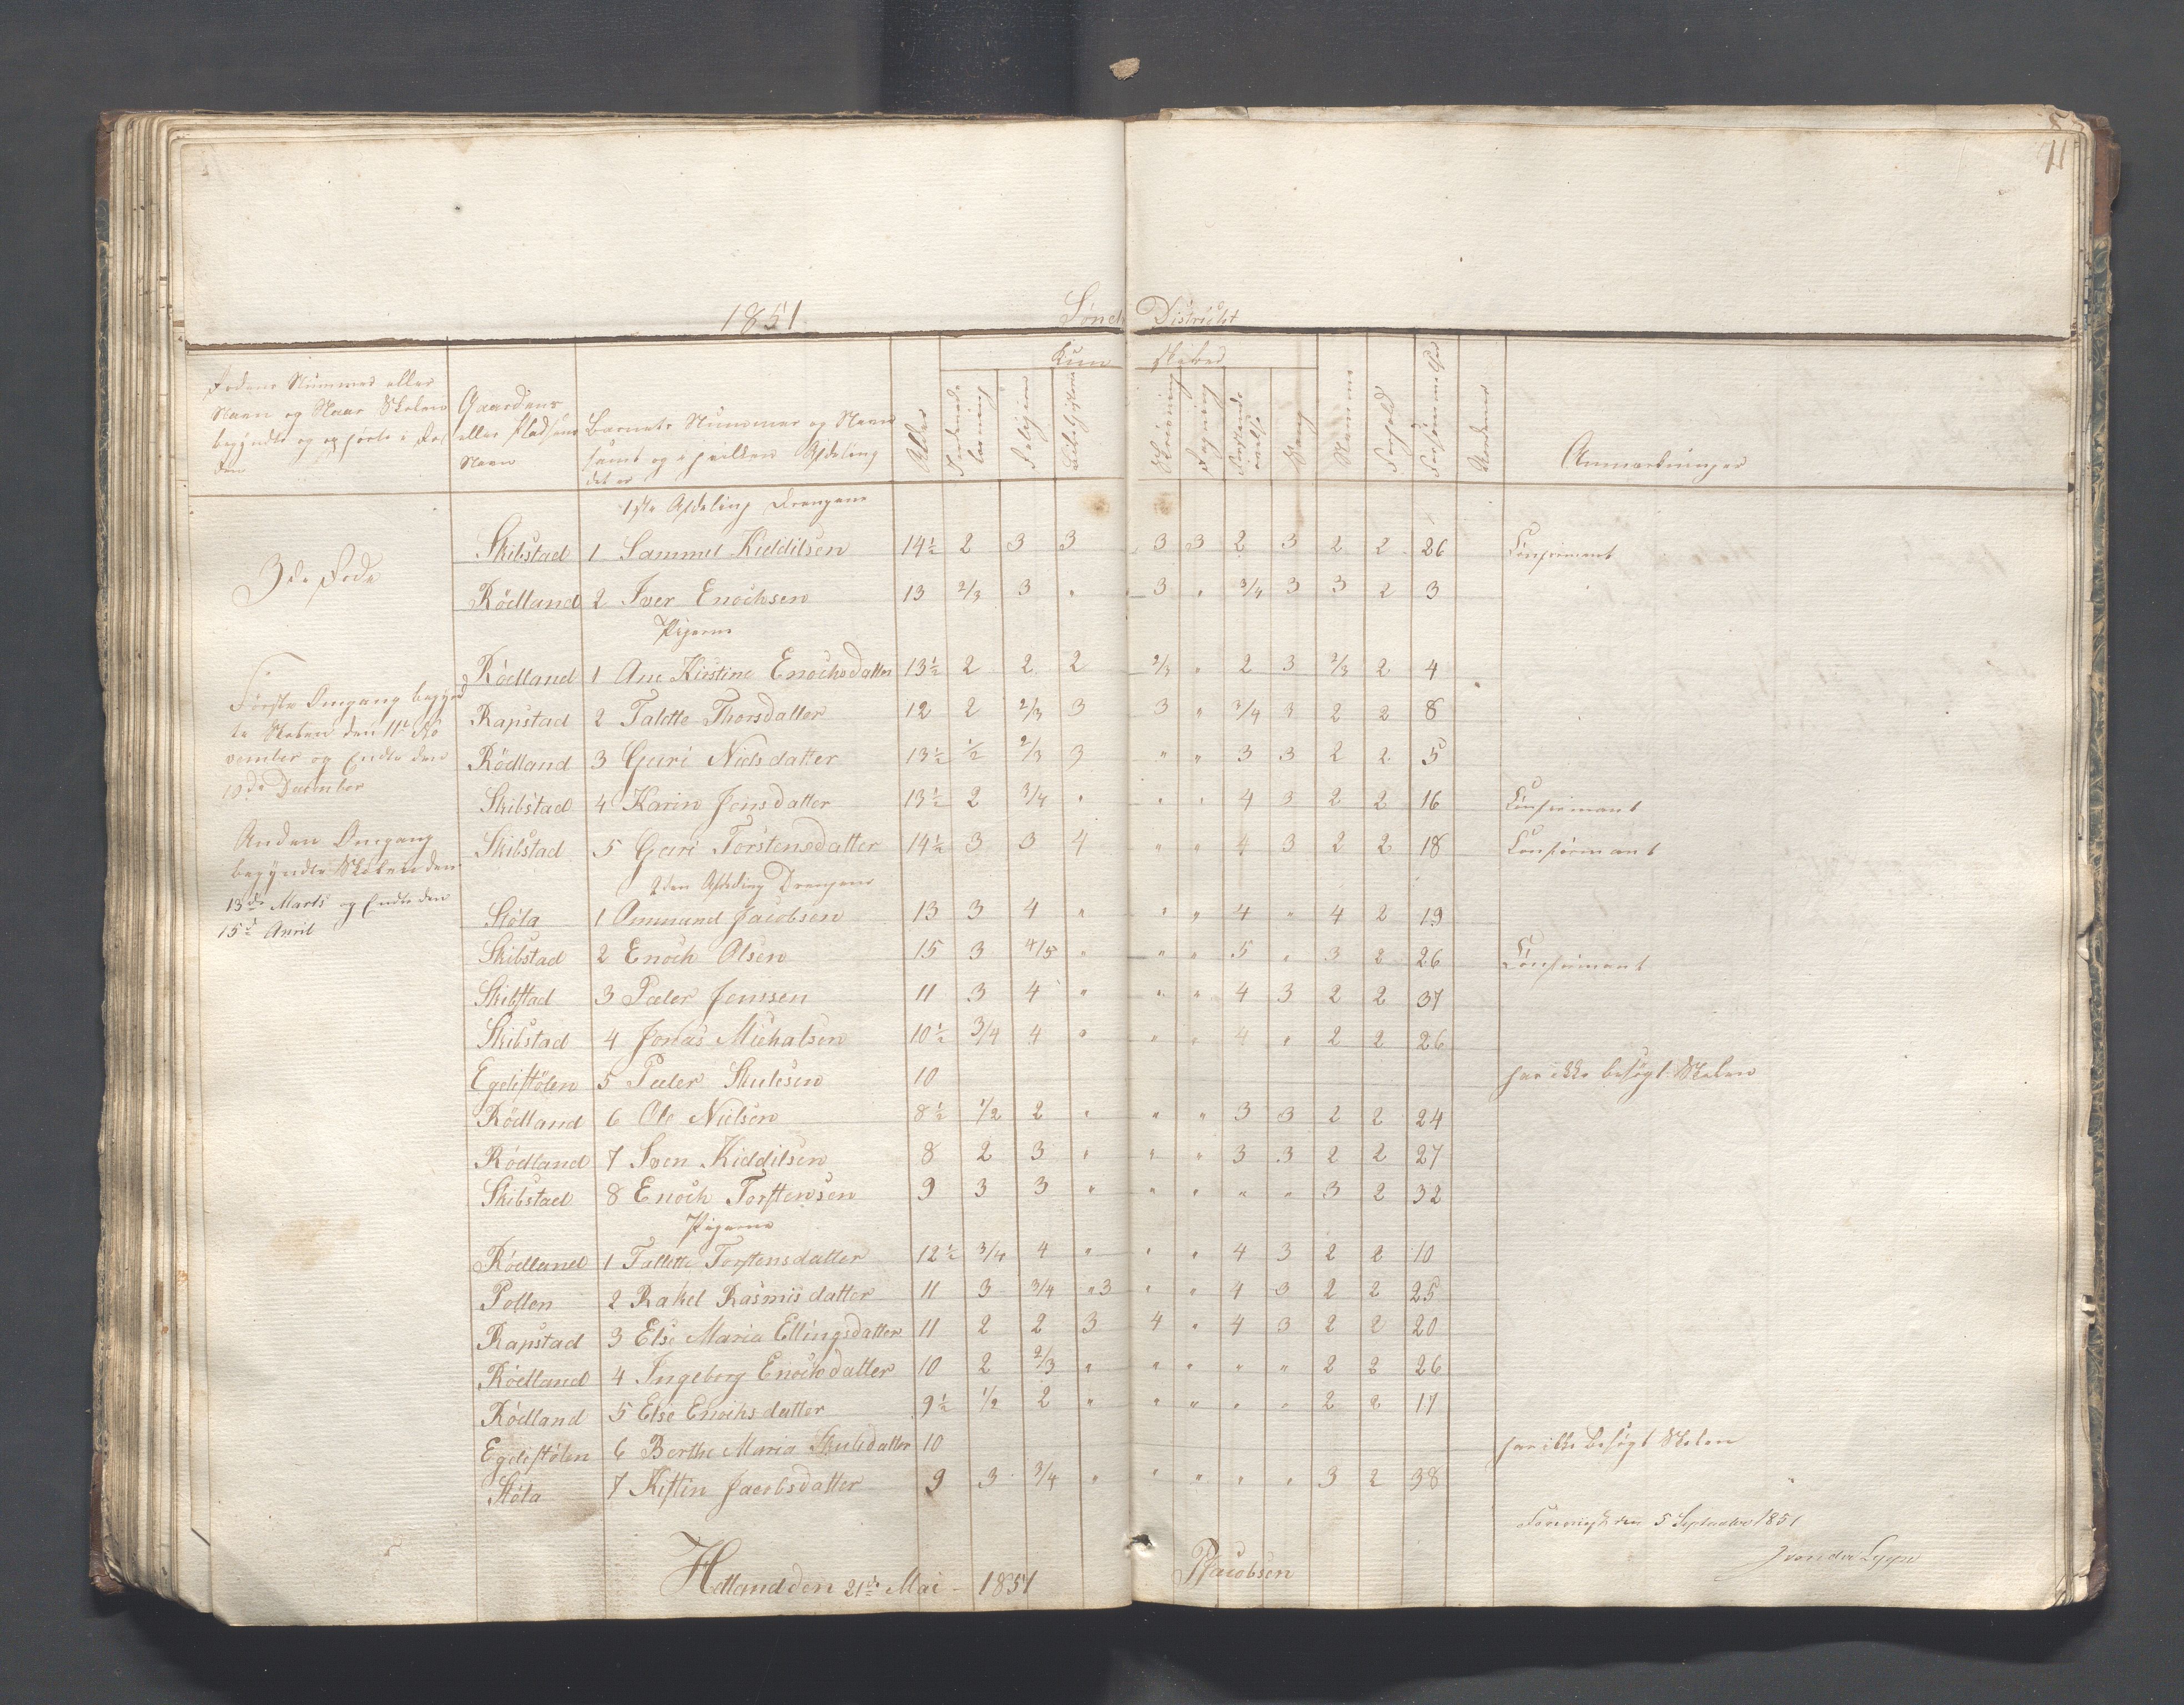 11
1851
Søndre District
Rodens Nummer eller
Navn og Naar Skolen
begyndte og ophørte i Ro
den
Gaardens
eller Pladsens
Navn
Barnets Nummer og Navn
samt og i hvilken Afdeling
det er
Alder
Kun skaber
Indenads
læsning
Religion
Bibelhistorie
Skrivning
Regning
Forstands
øvelse
Sang
Nemme
Forhold
Forsømmelser
Anmærkninger
1ste Afdeling Drengene
3de Rode
Skibstad 1 Sammel Kiddilsen 14½ 2 3 3 3 3 2 3 2 2 26 Confirmant
Rödland 2 Iver Enochsen 13 2/3 3 " 3 " 3/4 3 3 2 3
Pigerne
Rödland 1 Ane Kirstine Enochsdatter 13½ 2 2 2 2/3 " 2 3 2/3 2 4
Første Omgang begynd
te Skolen den 11te No
vember og Endte den
10de December
Rapstad 2 Talette Thorsdatter 12 2 2/3 3 3 " 3/4 3 2 2 8
Rödland 3 Guri Nielsdatter 13½ ½ 2/3 3 " " 3 3 2 2 5
Skibstad 4 Karin Jensdatter 13½ 2 3/4 " " " 4 3 2 2 16 Confirmant
Anden Omgang
begyndte Skolen den
13de Marts og Endte den
15de April
Skibstad 5 Guri Torstensdatter 14½ 3 3 4 " " 4 3 2 2 18 Confirmant
2den Afdeling Drengene
Støla 1 Ommund Jacobsen 13 3 4 " " " 4 " 4 2 19
Skibstad 2 Enoch Olsen 15 3 4/5 " " " 5 " 3 2 26 Confirmant
Skibstad 3 Peder Jenssen 11 3 4 " " " 4 3 2 2 37
Skibstad 4 Jonas Michalsen 10½ 3/4 4 " " " 4 " 2 2 26
Egelistølen 5 Peder Skulesen 10 har ikke besøgt Skolen
Rödland 6 Ole Nielsen 8½ 1/2 2 " " " 3 3 2 2 24
Rödland 7 Sven Kiddilsen 8 2 3 " " " 3 3 2 2 27
Skibstad 8 Enoch Torstensen 9 3 3 " " " " " 3 2 32
Pigerne
Rödland 1 Tallette Torstensdatter 12½ 3/4 4 " " " 4 3 2 2 10
Pollen 2 Rakel Rasmusdatter 11 3 3/4 "3 " " 4 3 2 2 25
Rapstad 3 Else Maria Ellingsdatter 11 2 2 3 4 " 4 3 2 2 20
Rödland 4 Ingeborg Enochsdatter 10 2 2/3 " " " " " 2 2 26
Rödland 5 Else Enochsdatter 9½ 1/2 2 " " " " " 2 2 17
Egelistølen 6 Berthe Maria Skuledatter 10 har ikke besøgt Skolen
Støla 7 Kistin Jacobsdatter 9 3 3/4 " " " " " 3 2 38
den 5 September 1851
von der Lippe
Hetland den 21de Mai 1851 P Jacobsen